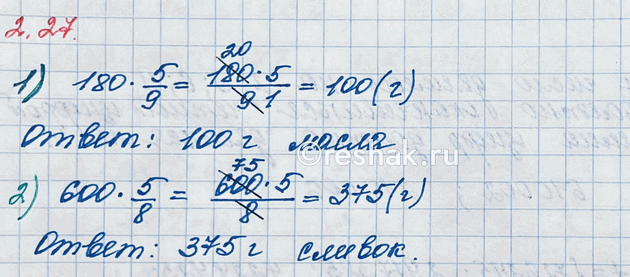 2.27.
1) 180 · 5/9 = 180 · 5 / 9 = 100 (г)
20
1
Ответ: 100 г масла
©reshak.ru
2) 600 · 5/8 = 600 · 5 / 8 = 375 (г)
75
Ответ: 375 г сливок.